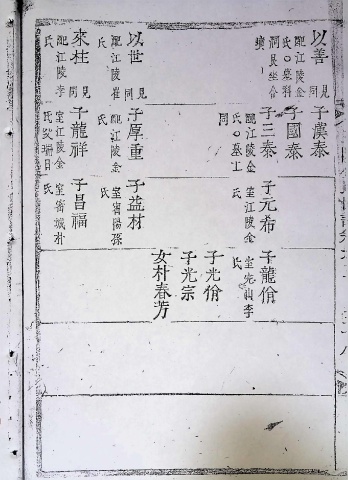 以善 見同
配江陵金
氏○墓科
洞艮坐合
子漢泰
子國泰
子三泰
配江陵金
氏○墓上
同
子元希
室江陵金
氏
子龍佾
室完山李
氏
子光佾
子光宗
女朴春芳
以世 見同
配江陵崔
氏
子厚重
配江陵金
氏
子益材
室密陽孫
氏
來柱 見同
配江陵李
氏
子龍祥
室江陵金
氏父珊日
子昌福
室密城朴
氏